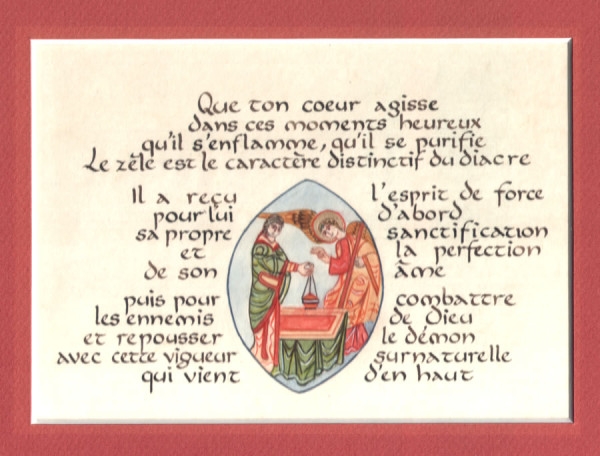 Que ton coeur agisse
dans ces moments heureux
qu'il s'enflamme, qu'il se purifie
Le zèle est le caractère distinctif du diacre
Il a reçu l'esprit de force
pour lui d'abord
sa propre sanctification
et la perfection
de son âme
puis pour combattre
les ennemis de Dieu
et repousser le démon
avec cette vigueur surnaturelle
qui vient d'en haut